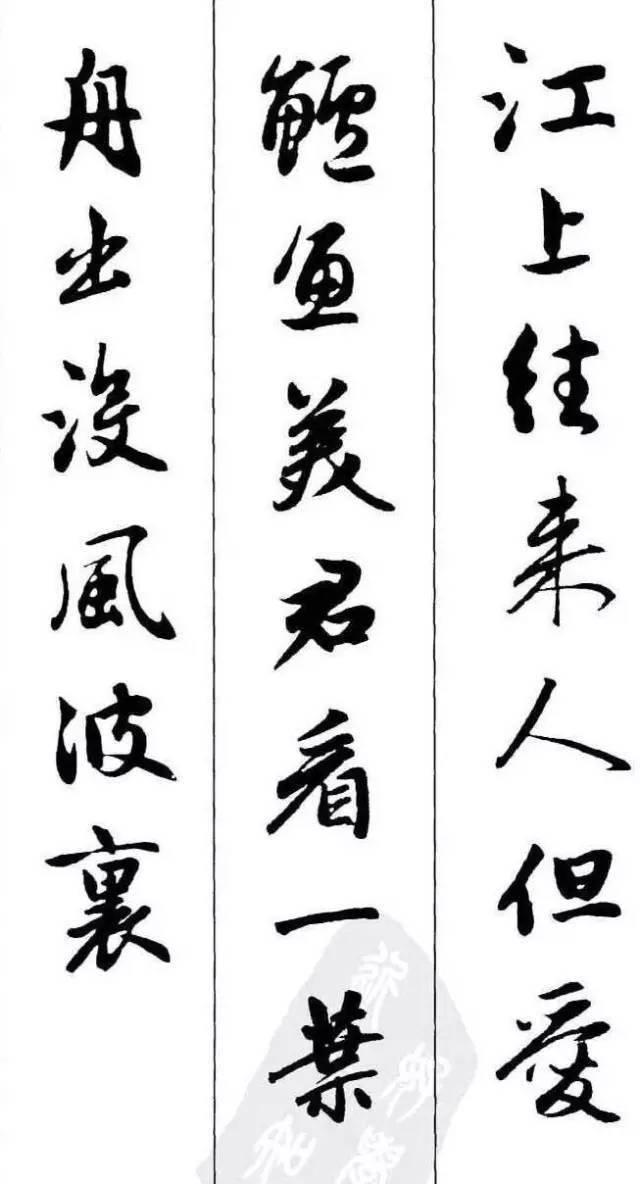 江上往来人但愛
鱸魚美君看一葉
舟出没風波裏